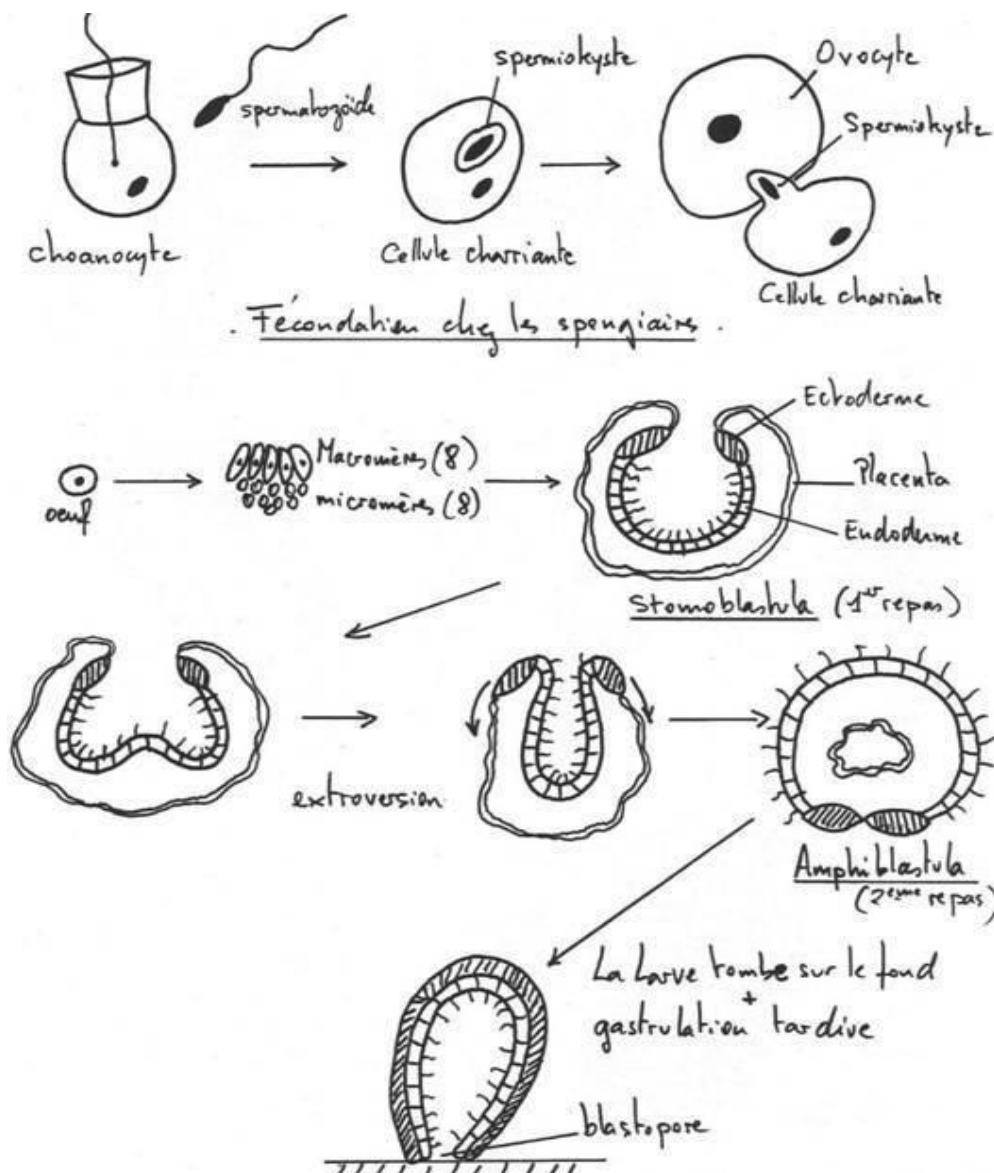 spermatozoïde
spermiokyste
Ovocyte
Spermiokyste
choanocyte
Cellule charriante
Cellule charriante
. Fécondation chez les spongiaires .
oeuf
Macromères (8)
micromères (8)
Ectoderme
Placenta
Endoderme
Stomoblastula (1er repas)
extroversion
Amphiblastula
(2ezme repas)
La Larve tombe sur le fond
+
gastrulation tardive
blastopore